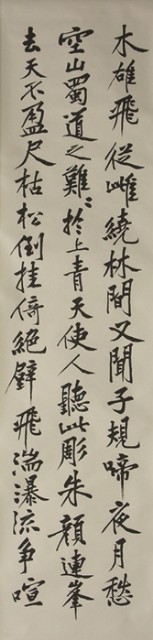 木雄飛從雌繞林間又聞子規啼夜月愁
空山蜀道之難〻於上青天使人聽此彫朱顏連峯
去天不盈尺枯松倒挂倚絕壁飛湍瀑流争喧